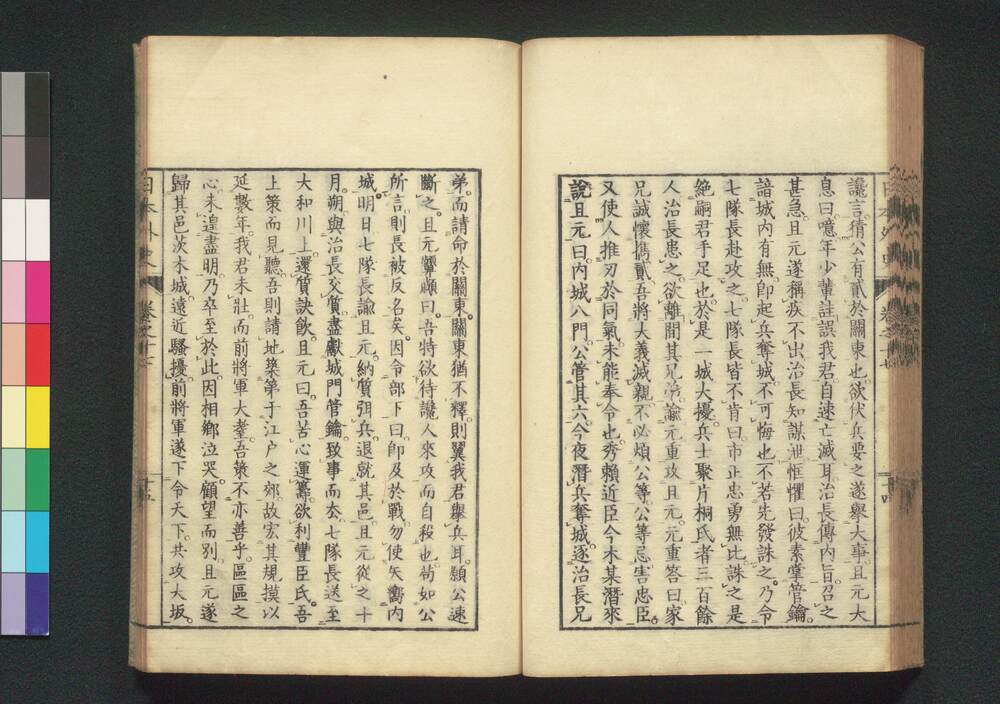 讒言猜公有貳於關東也欲伏兵要之遂擧大事且元大
息曰噫年少輩註誤我君自速亡滅耳治長傳内旨召之
甚急且元遂稱疾不出治長知謀泄恇懼曰彼素掌管鑰
諳城内有無即起兵奪城不可悔也不若先發誅之乃令
七隊長赴攻之七隊長皆不肯曰市正忠勇無比誅之是
絶嗣君手足也於是一城大擾兵士聚片桐氏者三百餘
人治長患之欲離間其兄弟諭元重攻且元元重答曰家
兄誠懷攜貳吾將大義滅親不必煩公等公等忌害忠臣
又使人推刃於同氣未能奉令也秀賴近臣今木某潛來
說且元曰内城八門公管其六今夜潛兵奪城逐治長兄
弟而請命於關東關東猶不釋則翼我君擧兵耳願公速
斷之且元顰蹙曰吾特欲待讒人來攻而自殺也苟如公
所言則長被反名矣因令部下曰即及於戰勿使矢嚮内
城明日七隊長諭且元納質弭兵退就其邑且元從之十
月朔與治長交質盡獻城門管鑰致事而去七隊長送至
大和川上還質訣飮且元曰吾苦心運籌欲利豐臣氏吾
上策而見聽吾則請地築第于江戸之郊故宏其規摸以
延數年我君未壯而前將軍大耋吾策不亦善乎區區之
心未遑盡明乃卒至於此因相鄕泣哭顧望而別且元遂
歸其邑茨木城遠近騷擾前將軍遂下令天下共攻大坂
日本外史